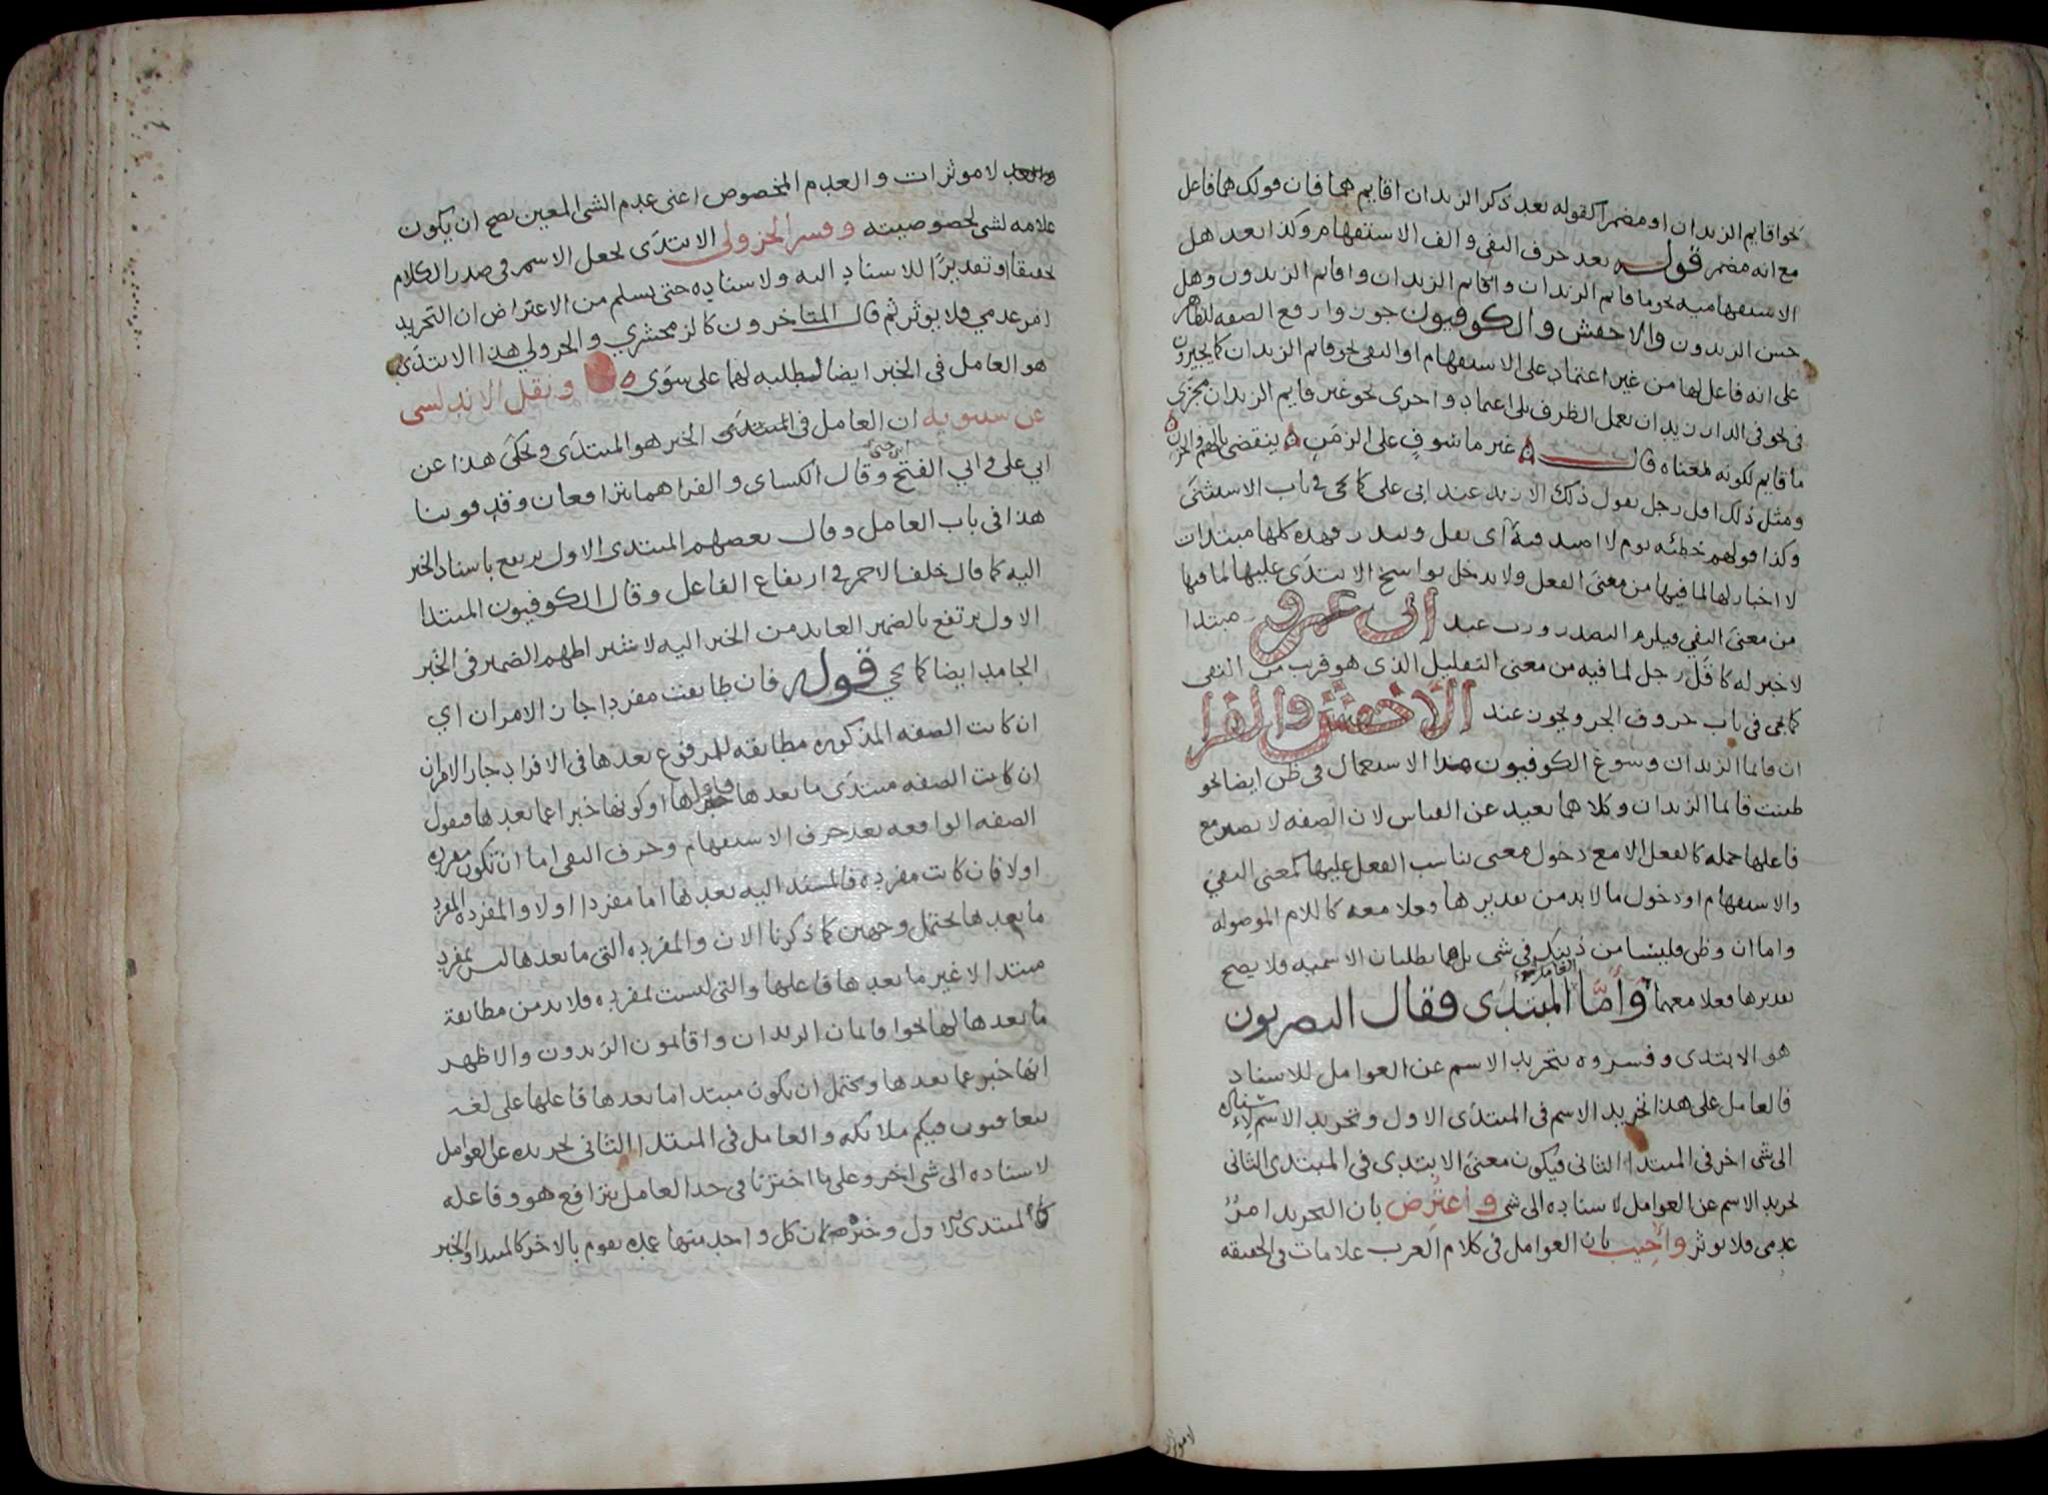 نحو اقايم الزيدان او مضمرا كقوله بعد ذكر الزيدان اقايم هما فان قولك هما فاعل
مع انه مضمر قوله بعد حرف النفي والف الاستفهام وكذا بعد هل
الاستفهاميه نحو ما قايم الزيدان واقايم الزيدان واقايم الزيدون وهل
حسن الزيدون والاخفش والكوفيون جوزوا رفع الصفه لظاهر
على انه فاعل لها من غير اعتماد على الاستفهام او النفي نحو قايم الزيدان كما يجيزون
في نحو في الدار زيد ان يعمل الظرف بلا اعتماد واجرى نحو غير قايم الزيدان مجرى
ما قايم لكونه بمعناه قال غير ماسوف على الزمن ينقضي بالهم والحزن
ومثل ذلك اقل رجل يقول ذلك الا زيد عند ابى على كما يجى في باب الاستثنى
وكذا قولهم خطئه يوم لا اصيد فيه اى يقل ويندر وهذه كلها مبتدات
لا اخبار لها لما فيها من معنى الفعل ولا يدخل نواسخ الابتدى عليها لما فيها
من معنى النفي فيلزم التصدر ورب عند ابى عمرو مبتدا
لا خبر له كاقل رجل لما فيه من معنى التقليل الذى هو قريب من النفى
كما يجى فى باب حروف الجر ويجوز عند الاخفش والفرا
ان قايما الزيدان وسوغ الكوفيون هذا الاستعمال فى ظن ايضا نحو
ظننت قايما الزيدان وكلاهما بعيد عن القياس لان الصفه لا تصير مع
فاعلها جمله كالفعل الا مع دخول معنى يناسب الفعل عليها كمعنى النفي
والاستفهام او دخول ما لا بد من تقديرها فعلا معه كاللام الموصوله
واما ان وظن فليسا من ذينك في شى بل هما يطلبان الاسميه فلا يصح
تقديرها فعلا معهما واما العامل فى المبتدى فقال البصريون
هو الابتدى وفسروه بتجريد الاسم عن العوامل للاسناد
فالعامل على هذا تجريد الاسم فى المبتدى الاول وتجريد الاسم لاسناده
الى شى اخر فى المبتدا الثانى فيكون معنى الابتدى فى المبتدى الثانى
تجريد الاسم عن العوامل لاسناده الى شى واعترض بان التجريد امر
عدمى فلا يوثر واجيب بان العوامل فى كلام العرب علامات فى الحقيقه
لا موثرات
لا موثرات والعدم المخصوص اعنى عدم الشى المعين يصح ان يكون
علامه لشى لخصوصيته وفسر الجزولى الابتدى بجعل الاسم فى صدر الكلام
تحقيقا او تقديرا للاسناد اليه ولاسناده حتى يسلم من الاعتراض ان التجريد
امر عدمي فلا يوثر ثم قال المتاخرون كالزمخشري والجزولي هذا الابتدى
هو العامل فى الخبر ايضا لطلبه لهما على سوى ونقل الاندلسى
عن سيبويه ان العامل فى المبتدى الخبر هو المبتدى ويحكى هذا عن
ابي على وابي الفتح ابن جنى وقال الكساى والفرا هما يترافعان وقد قوينا
هذا فى باب العامل وقال بعضهم المبتدى الاول يرتفع باسناد الخبر
اليه كما قال خلف الاحمر في ارتفاع الفاعل وقال الكوفيون المبتدا
الاول يرتفع بالضمير العايد من الخبر اليه لاشتراطهم الضمير فى الخبر
الجامد ايضا كما يجي قوله فان طابقت مفردا جاز الامران اي
ان كانت الصفه المذكوره مطابقه للمرفوع بعدها فى الافراد جاز الامران
ان كانت الصفه مبتدى ما بعدها فاعلها او كونها خبرا عما بعدها فنقول
الصفه الواقعه بعد حرف الاستفهام وحرف النفى اما ان تكون مفرده
اولا فان كانت مفرده فالمسند اليه بعدها اما مفردا اولا والمفرده المفرد
ما بعدها تحتمل وجهين كما ذكرنا الان والمفرده التى ما بعدها ليس بمفرد
مبتدا لا غير ما بعدها فاعلها والتى ليست بمفرده فلا بد من مطابقة
ما بعدها لها نحو اقايمان الزيدان واقايمون الزيدون والاظهر
انها خبر عما بعدها ويحتمل ان يكون مبتدا ما بعدها فاعلها على لغه
يتعاقبون فيكم ملايكه والعامل فى المبتدا الثانى تجريده عن العوامل
لاسناده الى شى اخر وعلى ما اخترنا فى حد العامل يترافع هو وفاعله
كالمبتدى الاول وخبره لان كل واحد منهما عمده يقوم بالاخر كالمبتدا والخبر